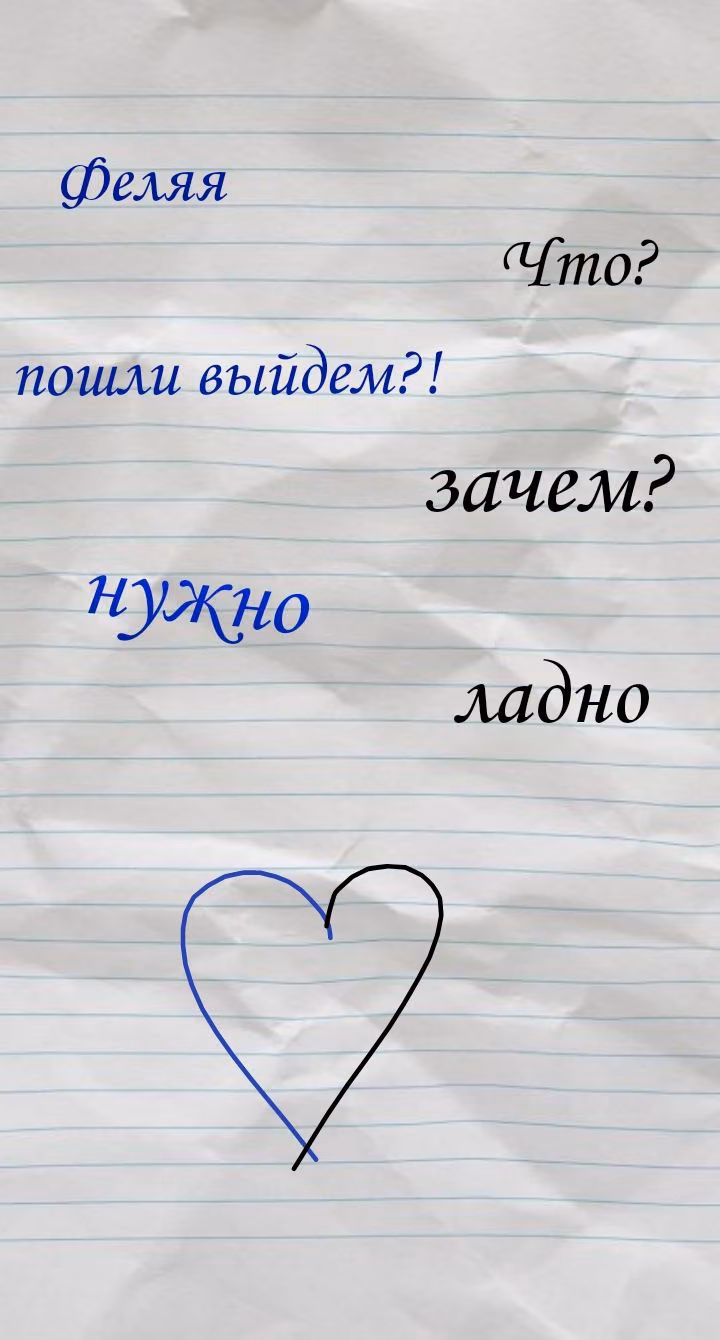 Феляя
Что?
пошли выйдем?!
зачем?
нужно
ладно